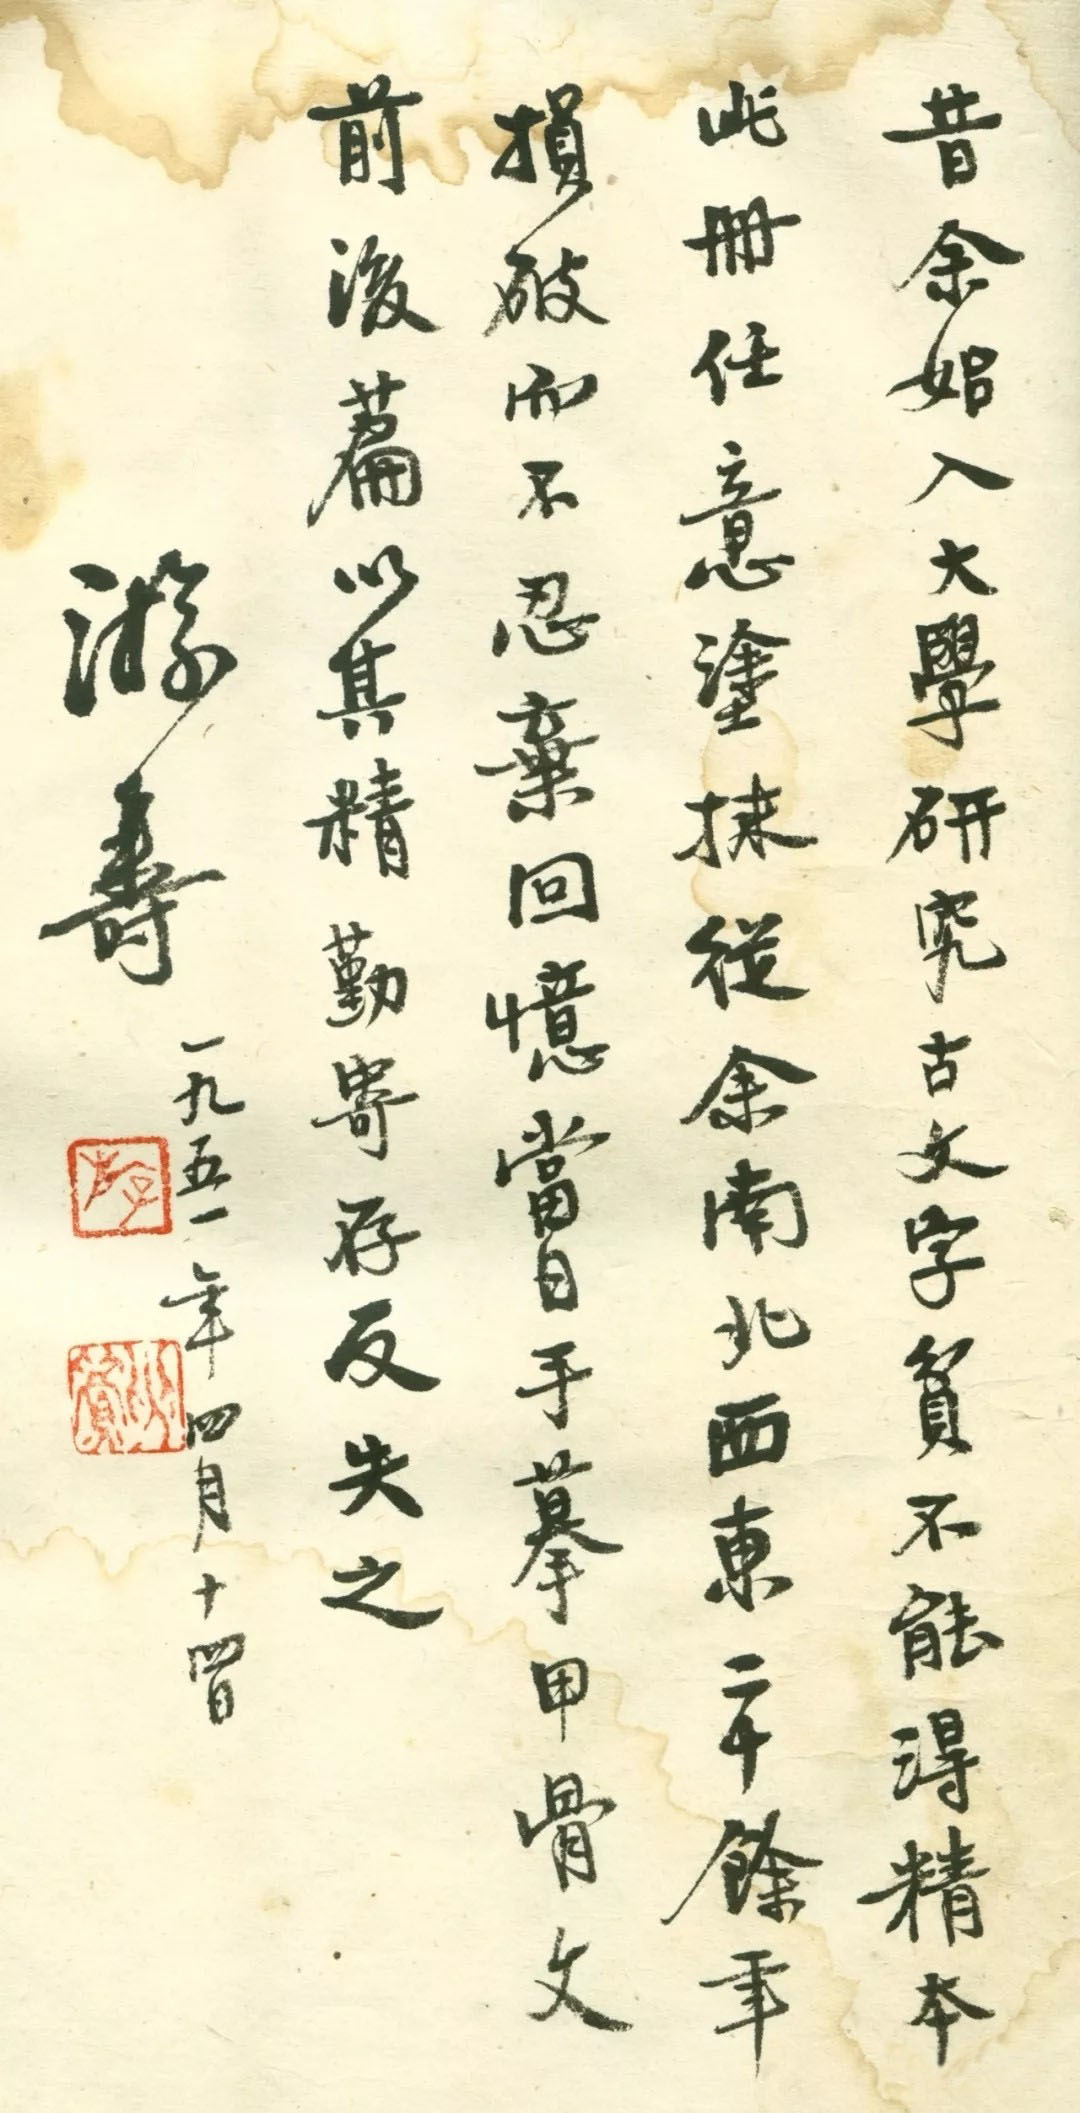 昔余始入大學研究古文字貧不能得精本
此冊任意塗抹從余南北西東二十餘年
損破而不忍棄回憶當日手摹甲骨文
前後篇以其精勤寄存反失之
游壽
一九五一年四月十四日